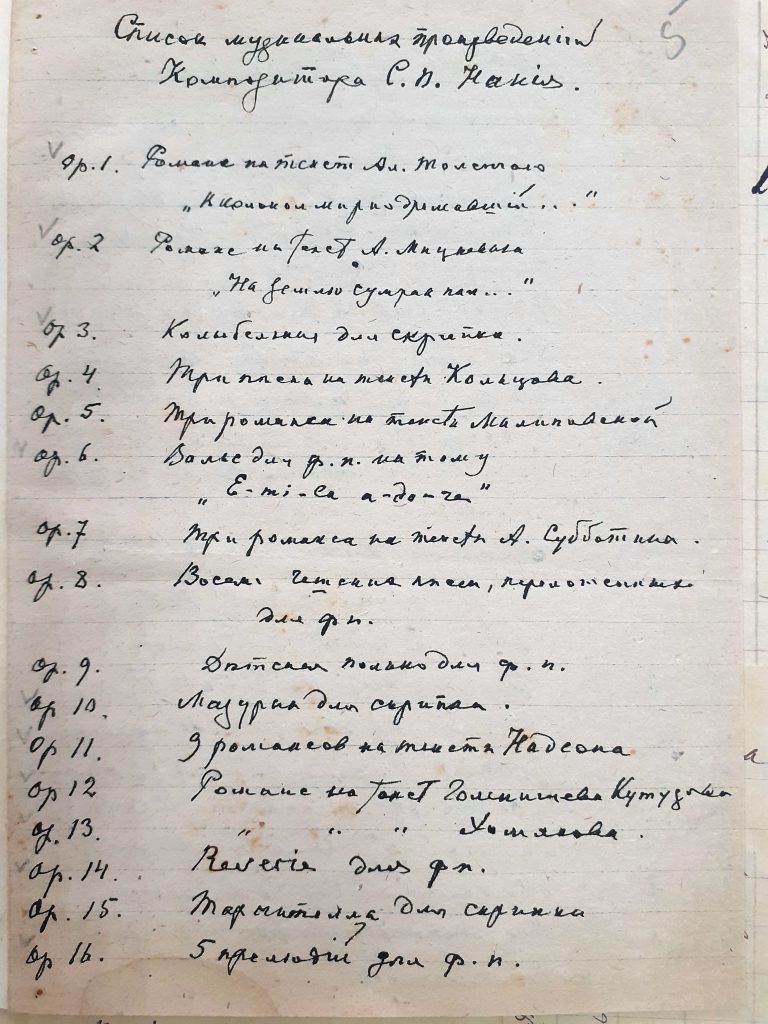 5
Список музыкальных произведенiй
Композитора С. П. Накiя.
Op. 1. Романс на текст Ал. Толстого
„Колокол мирно дремавшiй . . . "
Op. 2 Романс на текст А. Мицкевича
„На землю сумрак пал . . . "
Op 3. Колыбельная для скрипки .
Op. 4 Три песни на тексты Кольцова .
Op. 5. Три романса на тексты Малиновской
Op. 6. Вальс для ф. п. на тему
Op. 7 Три романса на тексты А. Субботина .
Op. 8. Восемь песен, переложенных
для фп.
Op. 9. Дѣтская полька для ф. п.
Op 10. Мазурка для скрипки .
Op 11. 9 романсов на тексты Надсона
Op 12 Романс на текст Голенищева Кутузова
Op. 13. " " " Хомякова .
Op. 14. Reverie для фп.
Op. 15. Тарантелла для скрипки
Op 16. 5 прелюдiй для ф. п.